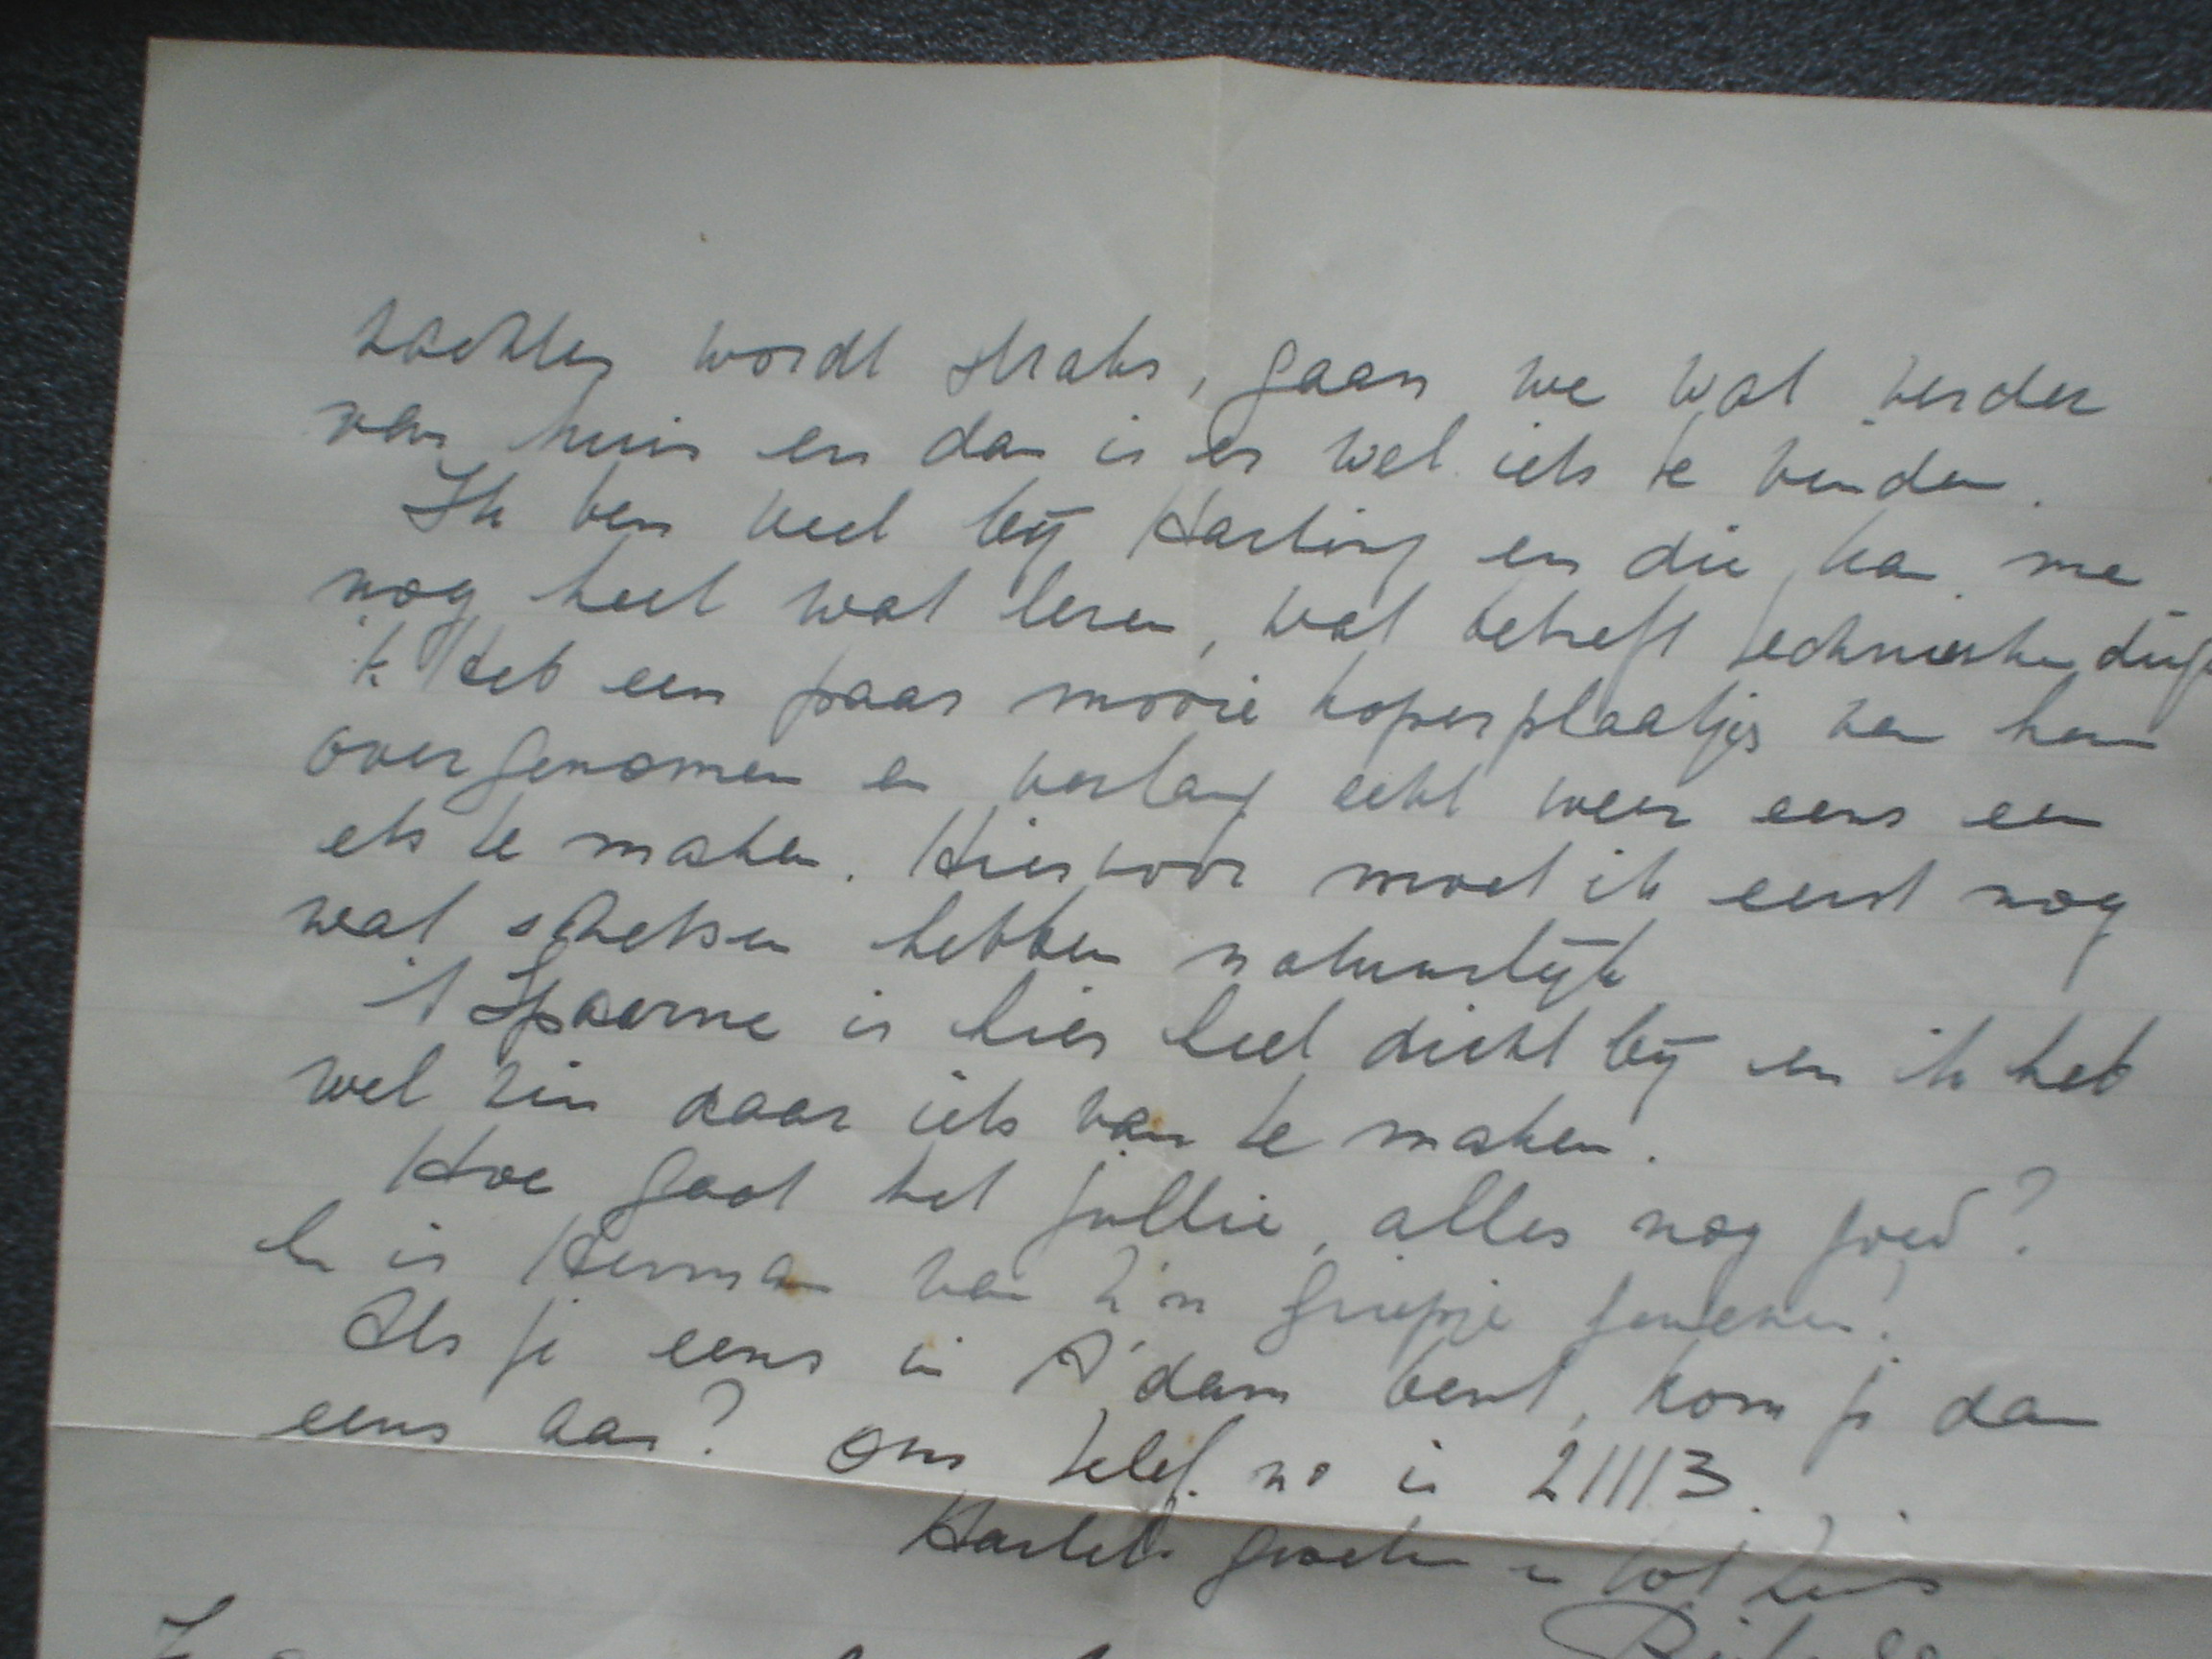 zachter wordt straks, gaan we wat verder
van huis en dan is er wel iets te vinden.
Ik ben veel bij Harting en die kan me
nog heel wat leren, wat betreft technische
'k Heb een paar mooie koperplaatjes van hem
overgenomen en verlang echt weer eens een
ets te maken. Hiervoor moet ik eerst nog
wat schetsen hebben natuurlijk
't Spaarne is hier heel dicht bij en ik heb
wel zin daar iets van te maken.
Hoe gaat het jullie, alles nog goed?
En is Herman van z'n griepje genezen?
Als je eens in A'dam bent, kom je dan
eens aan? Ons telef. no is 21113.
Hartel. groeten en tot ziens